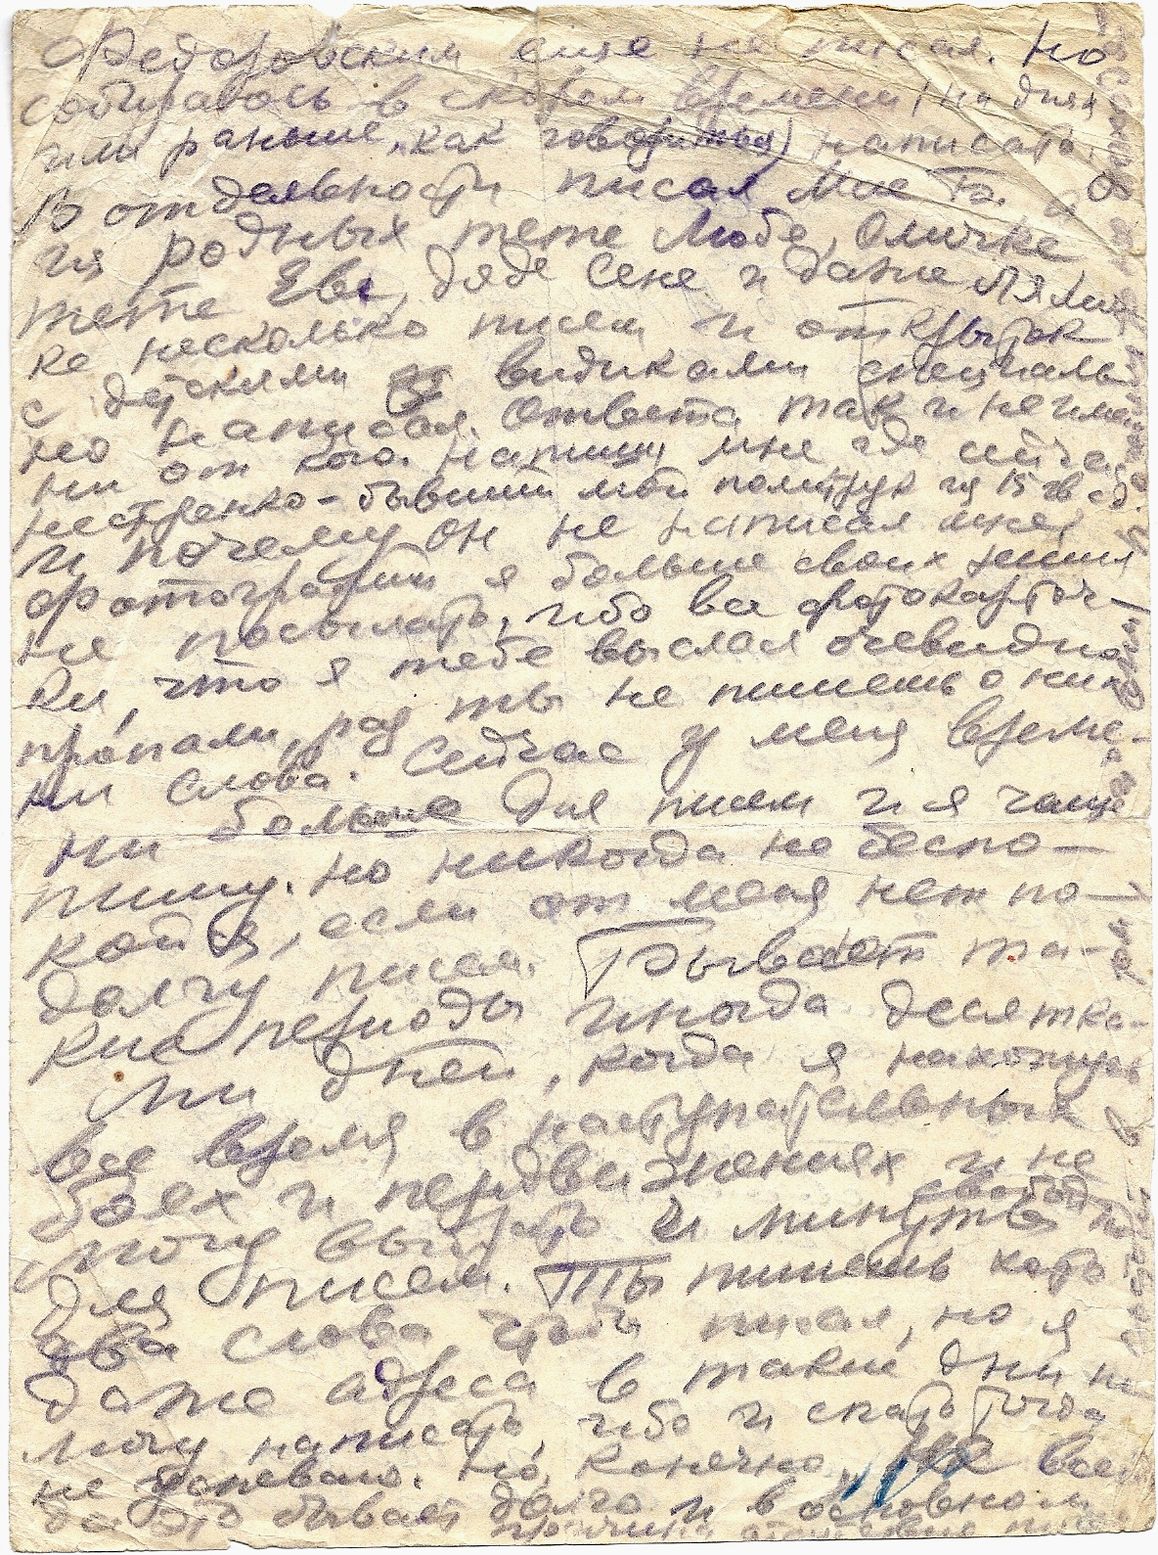 Федоровским еще не писал. Но
собираюсь в скором времени (на днях
или раньше, как говориться) написать.
В отдельности писал
из родных тете Любе, Оличке
тете Еве, дяде Сене и даже Ляляч
ке несколько писем и открыток
с детскими видиками специаль
но написал. Ответа так и не имею
ни от кого. Напиши мне где сейчас
Нестренко - бывший мой политрук из 15 гв сд.
И почему он не написал мне?
Фотографий я больше своих
не посылать, ибо все фотокарточ-
ки, что я тебе выслал очевидно
пропали, раз ты не пишешь о них
ни слова. Сейчас у меня време-
ни больше для писем и я чаще
пишу. Но никогда не беспо-
койся, если от меня нет по-
долгу писем. Бывают та-
кие периоды иногда десятка-
ми дней, когда я нахожусь
все время в наступательных
боях и передвижениях и не
могу выбрать и минуты свободн
для писем. Ты пишешь хоть
два слова чтоб писал, но я
даже адреса в такие дни не
могу написать, ибо и спать тогда
не успеваю. Но, конечно, не всег
да это бывает долго и в основном
причина отсутствие